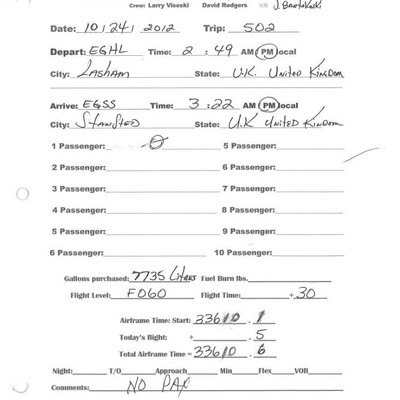 Crew: Larry Visoski David Rodgers J. Bartowski
Date: 10/24/2012 Trip: 502
Depart: EGHL Time: 2 : 49 AM PM local
City: Lasham State: U.K. United Kingdom
Arrive: EGSS Time: 3 : 22 AM PM local
City: Stansted State: U.K United Kingdom
1 Passenger: 0 5 Passenger:
2 Passenger: 6 Passenger:
3 Passenger: 7 Passenger:
4 Passenger: 8 Passenger:
5 Passenger: 9 Passenger:
6 Passenger: 10 Passenger:
Gallons purchased: 7735 Litres Fuel Burn lbs.
Flight Level: F060 Flight Time: +30
Airframe Time: Start: 33610 . 1
Today's flight: + . 5
Total Airframe Time = 33610 . 6
Night: T/O Approach Min Flex VOR
Comments: NO PAX